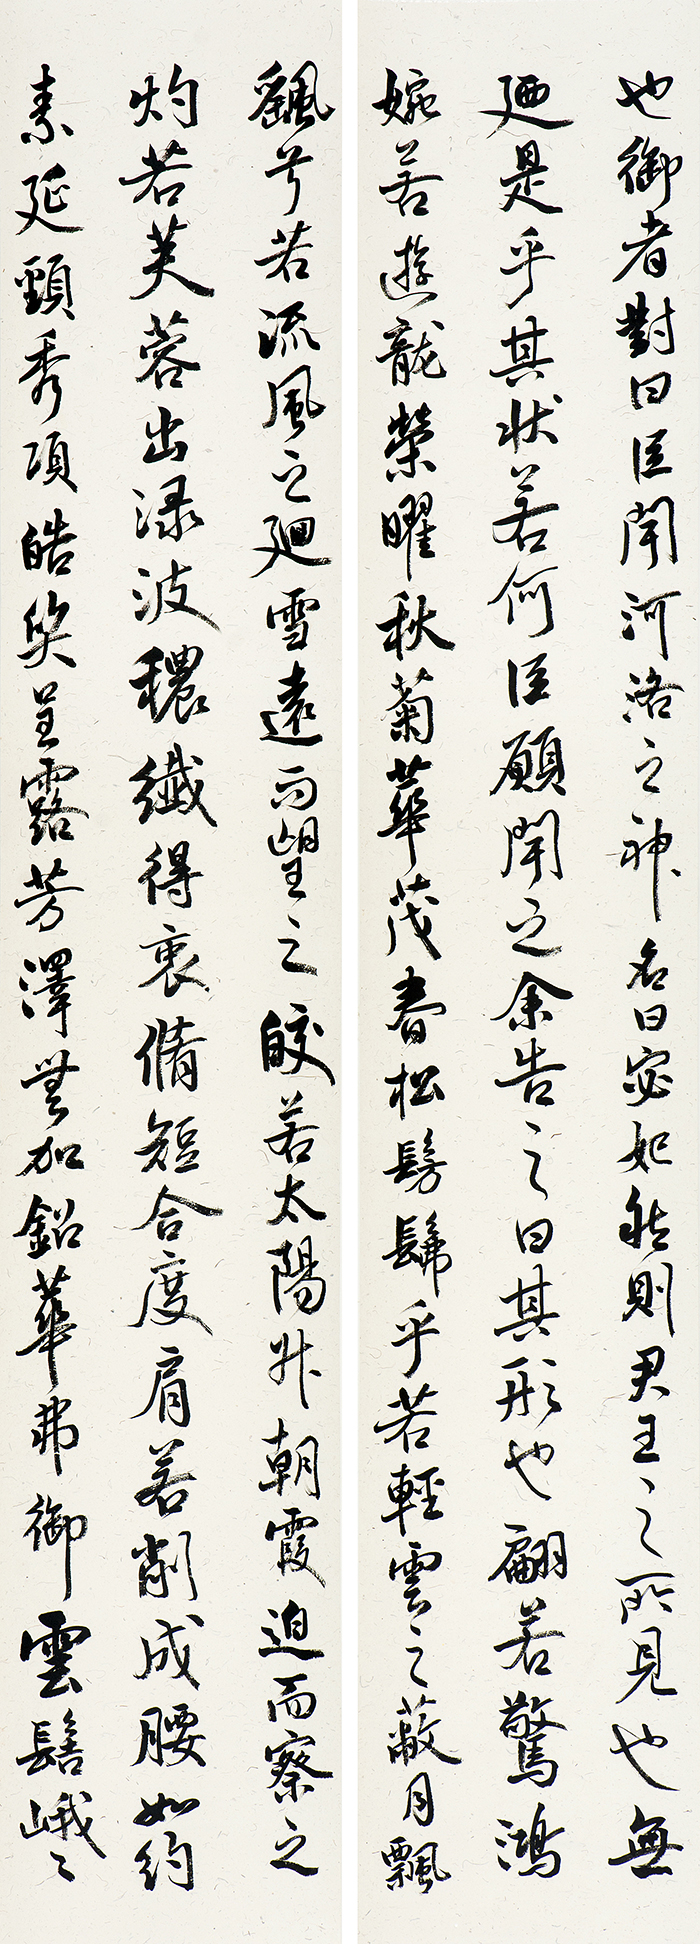 也御者對曰臣聞河洛之神名曰宓妃然則君王之所見也無
廼是乎其狀若何臣願聞之余告之曰其形也翩若驚鴻
婉若遊龍榮曜秋菊華茂春松髣髴乎若輕雲之蔽月飄
飖兮若流風之廻雪遠而望之皎若太陽升朝霞迫而察之
灼若芙蓉出渌波穠纖得衷脩短合度肩若削成腰如約
素延頸秀項皓質呈露芳澤無加鉛華弗御雲髻峨々